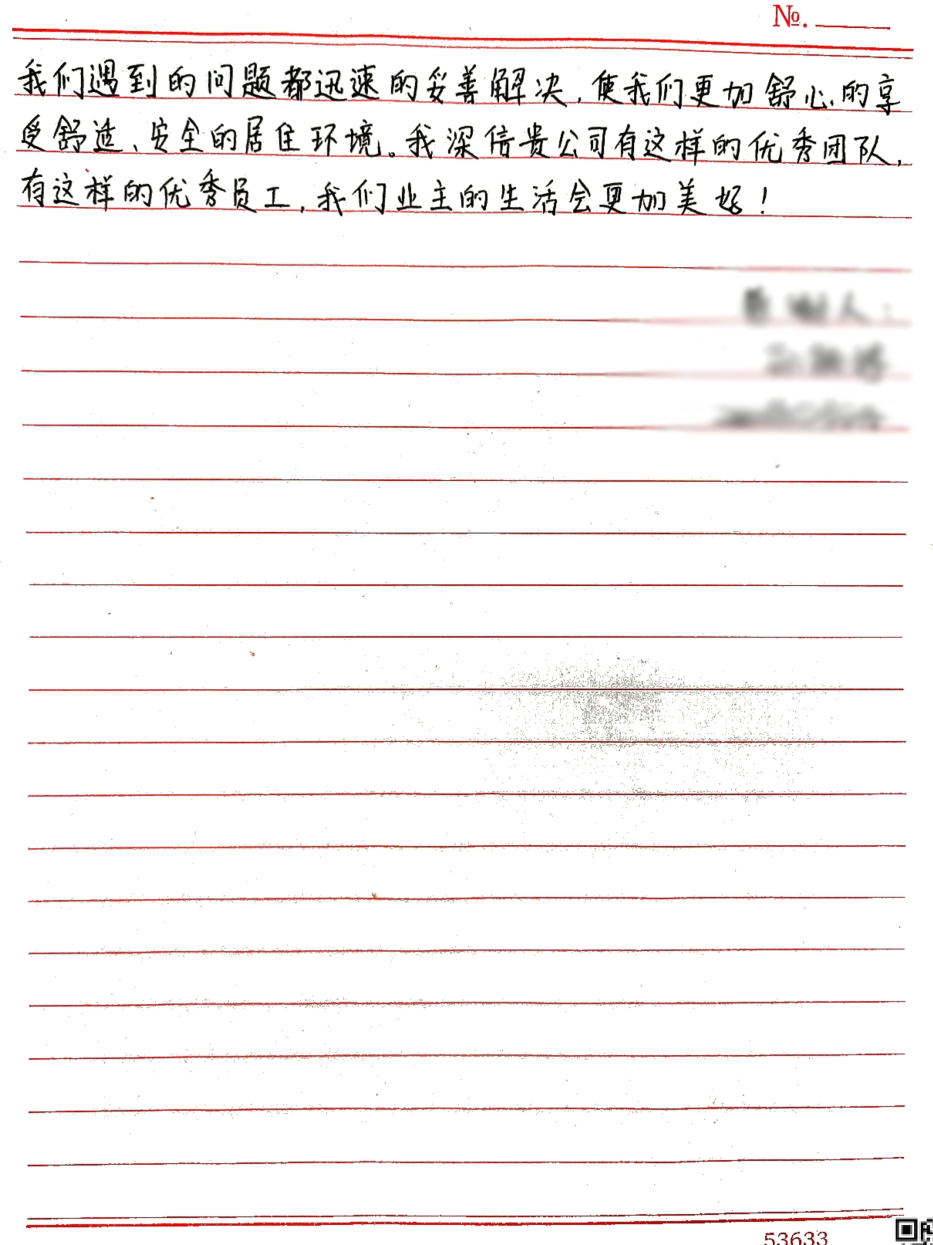 №.
我们遇到的问题都迅速的妥善解决,使我们更加舒心的享
受舒适、安全的居住环境。我深信贵公司有这样的优秀团队,
有这样的优秀员工,我们业主的生活会更加美好!
53633